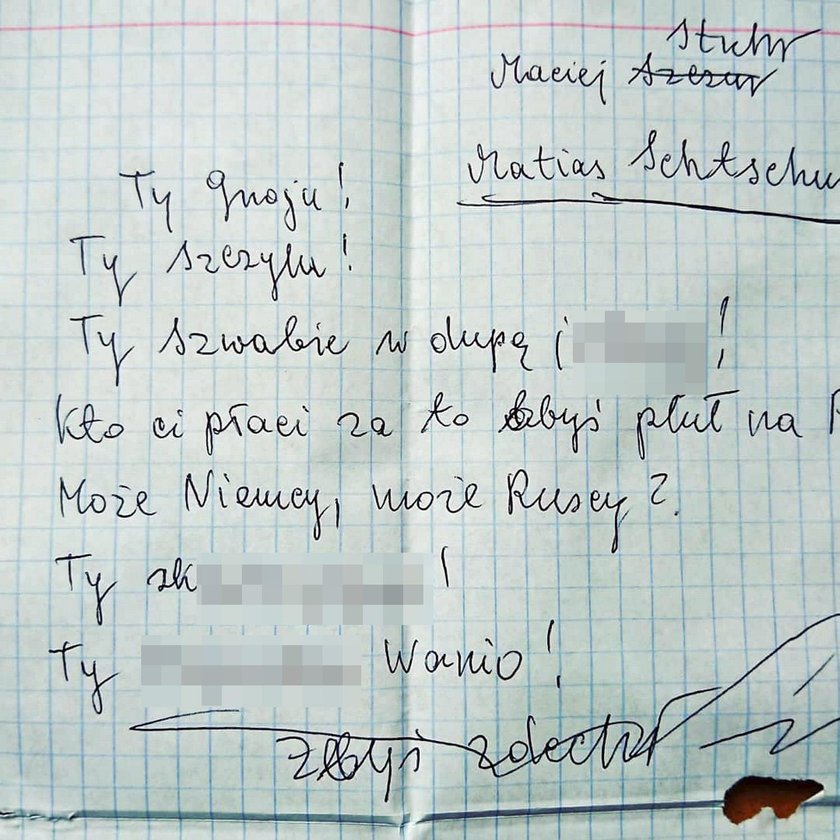 Stuhr
Maciej Szczur
Matias Schtschu
Ty gnoju!
Ty szczylu!
Ty szwabie w dupę i !
Kto ci płaci za to żebyś pluł na
Może Niemcy, może Ruscy?
Ty sk !
Ty Wanio!
Żebyś zdechł